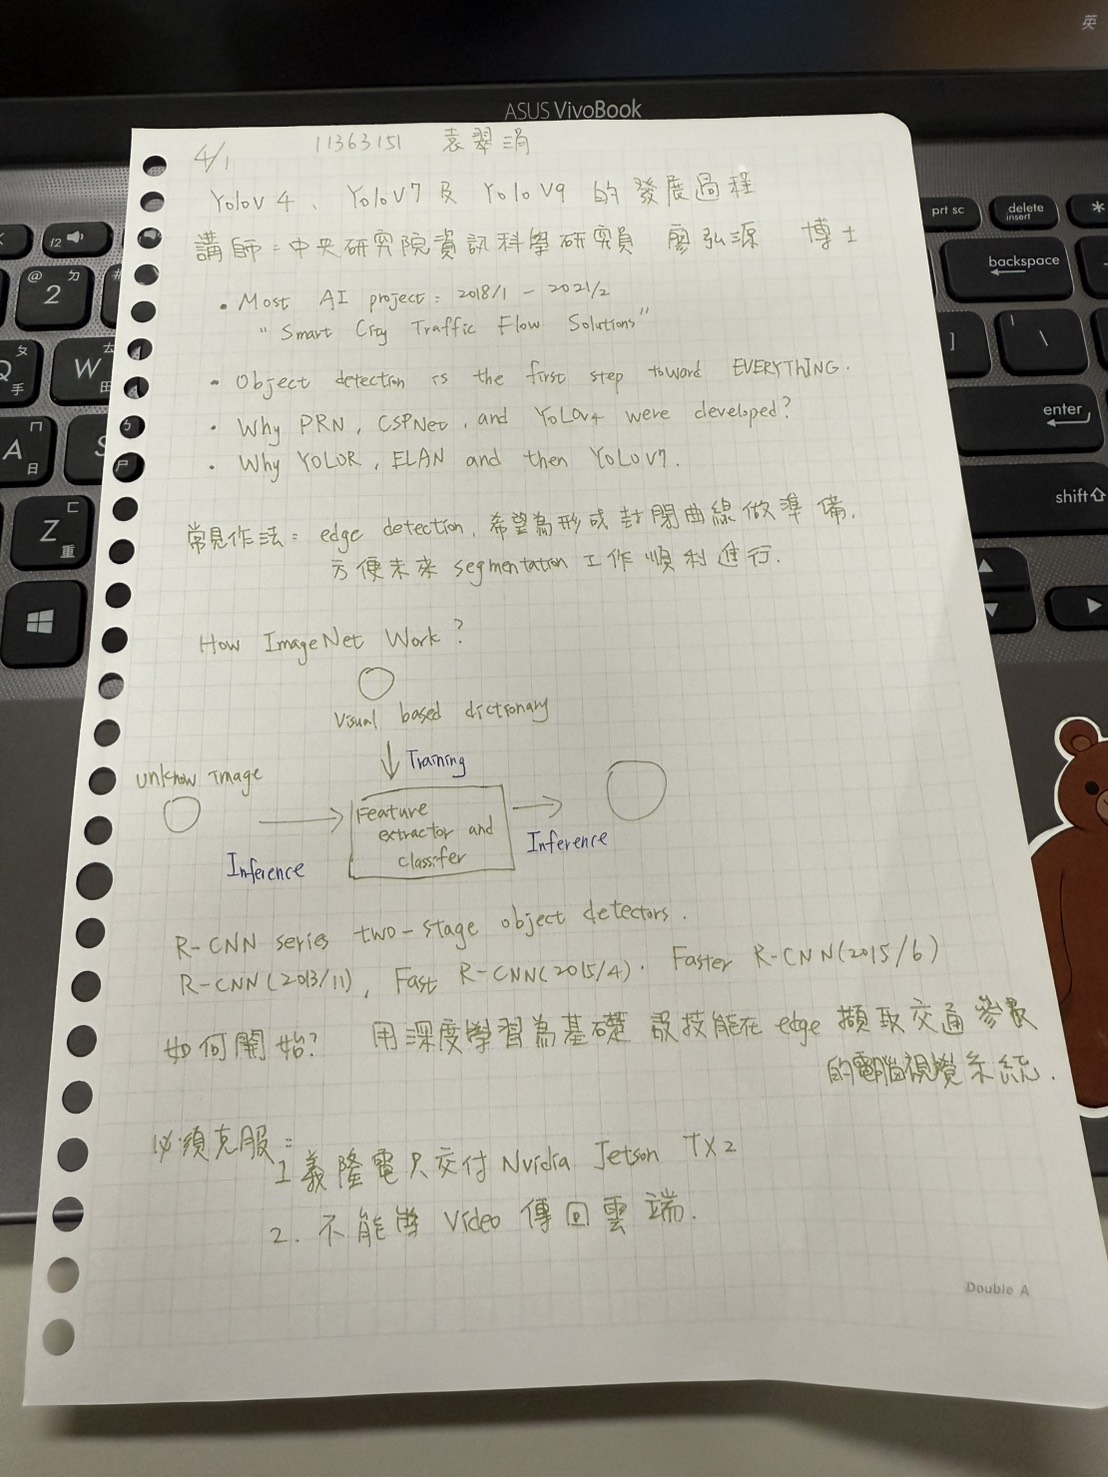 英
ASUS VivoBook
4/1 11363151 袁翠涓
YoloV4、YoloV7及YoloV9的發展過程
講師:中央研究院資訊科學研究員 廖弘源 博士
• Most AI project: 2018/1 - 2021/2
"Smart City Traffic Flow Solutions"
• Object detection is the first step toward EVERYTHING.
• Why PRN, CSPNet, and YOLOv4 were developed?
• Why YOLOR, ELAN and then YOLOV7.
常見作法: edge detection, 希望為形成封閉曲線做準備.
方便未來 segmentation 工作順利進行.
How ImageNet Work?
Visual based dictionary
Training
Unknow Image
Feature
extractor and
classifer
Inference
Inference
R-CNN series two-stage object detectors.
R-CNN(2013/11), Fast R-CNN(2015/4). Faster R-CNN(2015/6)
如何開始? 用深度學習為基礎 設技能在 edge 擷取交通參數
的電腦視覺系統.
必須克服:
1 義隆電只交付 Nvidia Jetson TX2
2. 不能將 Video 傳回雲端.
Double A
prt sc
delete
insert
*
backspace
enter
shift
F2
@
2
ㄉ
W
ㄊ
田
Q
ㄆ
手
A
ㄇ
日
S
Z
ㄈ
重
ㄅ
ㄕ
]
\
|